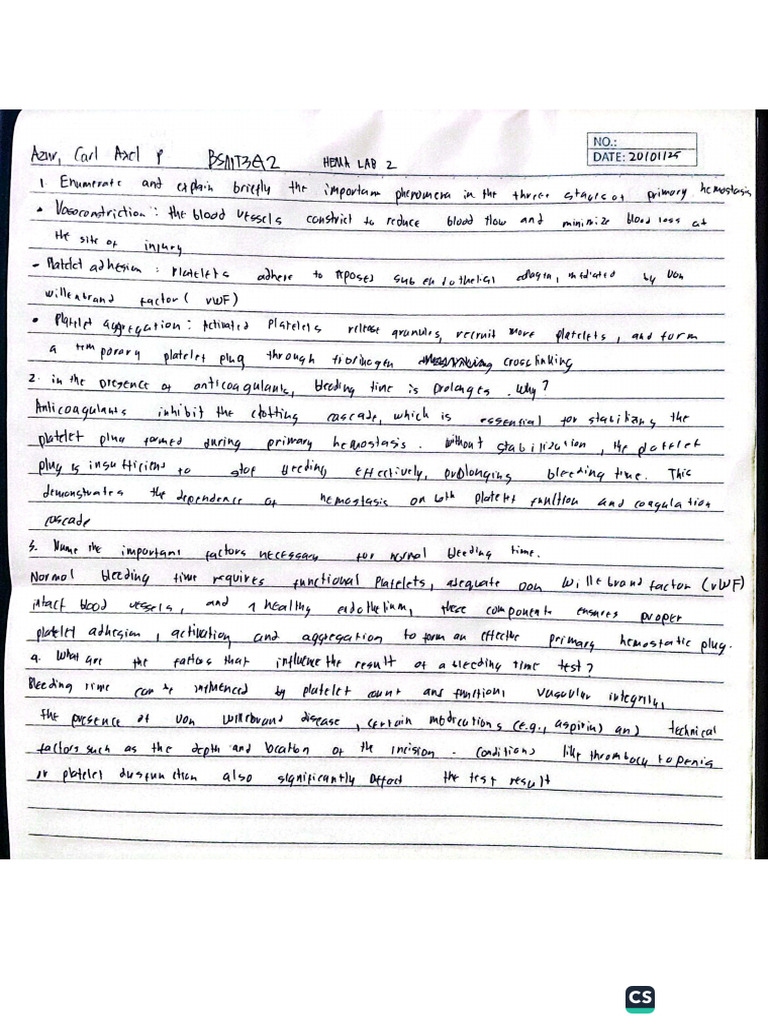 NO.:
Azur, Carl Axel P BSMT3A2 HEMA LAB 2 DATE: 20/01/25
1. Enumerate and explain briefly the important phenomena in the three stages of primary hemostasis
• Vasoconstriction: the blood vessels constrict to reduce blood flow and minimize blood loss at
the site of injury
• Platelet adhesion: Platelets adhere to exposed subendothelial collagen, mediated by Von
willenbrand factor (vWF)
• Platelet aggregation: Activated Platelets release granules, recruit more platelets, and form
a temporary platelet plug through fibrinogen crosslinking
2. in the presence of anticoagulants, bleeding time is prolonges. Why?
Anticoagulants inhibit the clotting cascade, which is essential for stabilizing the
platelet plug formed during primary hemostasis. Without stabilization, the platelet
plug is insufficient to stop bleeding effectively, prolonging bleeding time. This
demonstrates the dependence of hemostasis on both platelet function and coagulation
cascade
3. Name the important factors necessary for normal bleeding time.
Normal bleeding time requires functional Platelets, adequate von Willebrand factor (vWF)
intact blood vessels, and a healthy endothelium, these components ensures proper
platelet adhesion, activation and aggregation to form an effective primary hemostatic plug.
4. What are the factors that influence the result of a bleeding time test?
Bleeding time can be influenced by platelet count and function, vascular integrity,
the presence of von willebrand disease, certain medications (e.g., aspirin) and technical
factors such as the depth and location of the incision. Conditions like thrombocytopenia
or platelet dysfunction also significantly affect the test result
CS